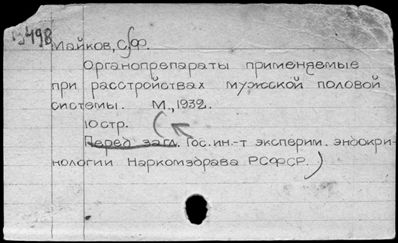 498
Майков, С.Ф.
Органопрепараты применяемые
при расстройствах мужской половой
системы. М., 1932.
10 стр. (
Перед загл. Гос. ин.-т эксперим. эндокри-
нологии Наркомздрава РСФСР.)